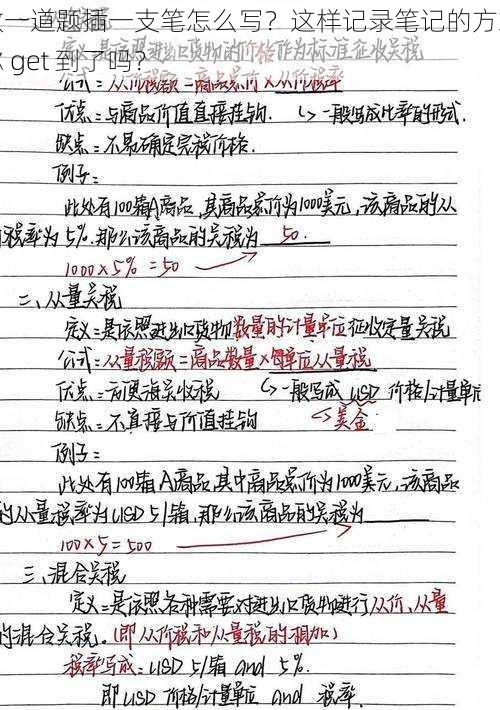 一道题插一支笔怎么写？这样记录笔记的方
get 到了吗？
定义=是依照进出口货物的价格作为标准征收关税
公式=从价税额=商品总价×从价税率
优点=与商品价值直接挂钩. ↳一般写成比率的形式.
缺点=不易确定完税价格.
例子=
此处有100箱A商品,其总价为1000美元,该商品的从
税率为5%.那么该商品的关税为 50.
1000×5%=50
二、从量关税
定义=是依照进出口货物数量的计量单位征收定量关税
公式=从量税额=商品数量×每单位从量税
优点=方便海关收税 ↳一般写成 USD 价格/计量单位
缺点=不直接与价值挂钩 ↳美金
例子=
此处有100箱A商品,其中商品总价为1000美元,该商品
的从量税率为USD 5/箱,那么该商品的关税为
100×5=500
三、混合关税
定义=是依照各种需要对进出口货物进行从价、从量
的混合关税。(即从价税和从量税的相加)
税率写成=USD 5/箱 and 5%.
即USD 价格/计量单位 and 税率.